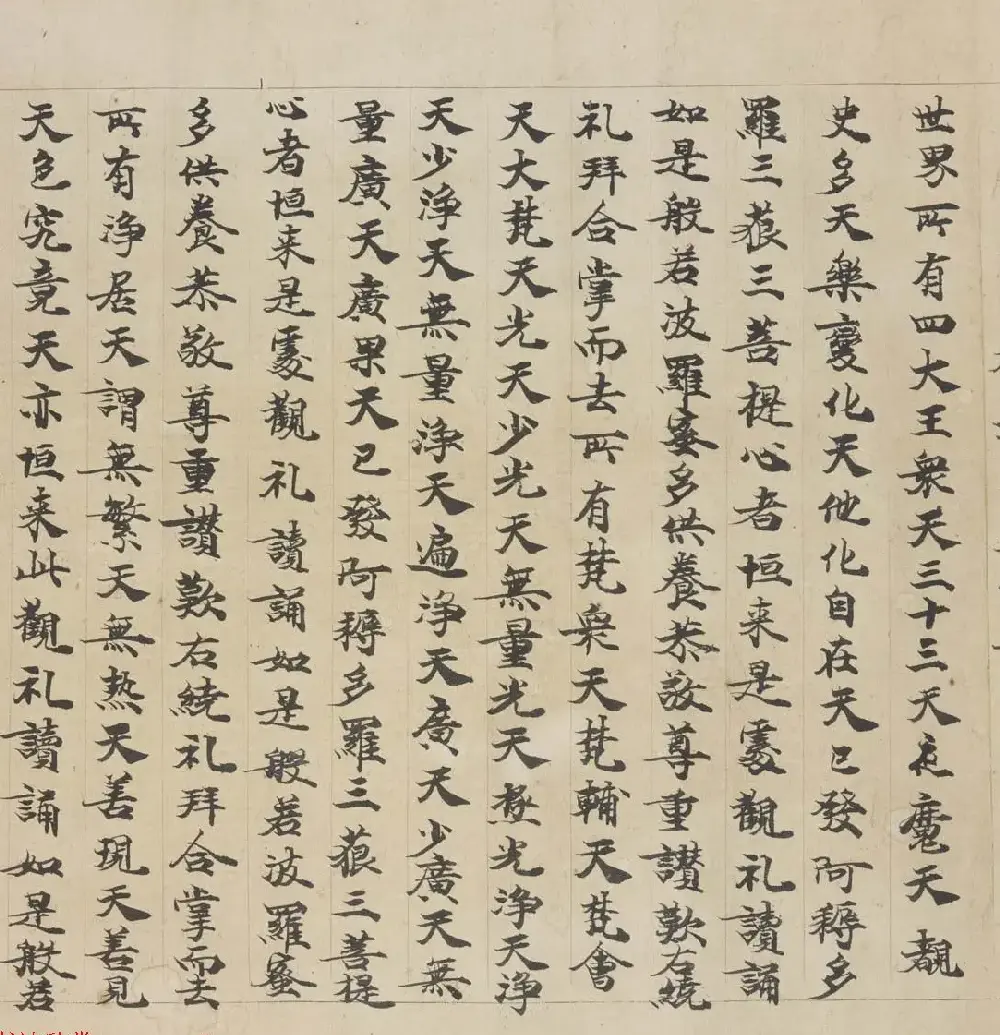 世界所有四大王衆天三十三天夜魔天覩
史多天樂變化天他化自在天已發阿耨多
羅三藐三菩提心者恒来是處觀礼讀誦
如是般若波羅蜜多供養恭敬尊重讃歎右繞
礼拜合掌而去所有梵衆天梵輔天梵會
天大梵天光天少光天無量光天極光浄天浄
天少浄天無量浄天遍浄天廣天少廣天無
量廣天廣果天已發阿耨多羅三藐三菩提
心者恒来是處觀礼讀誦如是般若波羅蜜
多供養恭敬尊重讃歎右繞礼拜合掌而去
所有浄居天謂無繁天無熱天善現天善見
天色究竟天亦恒来此觀礼讀誦如是般若